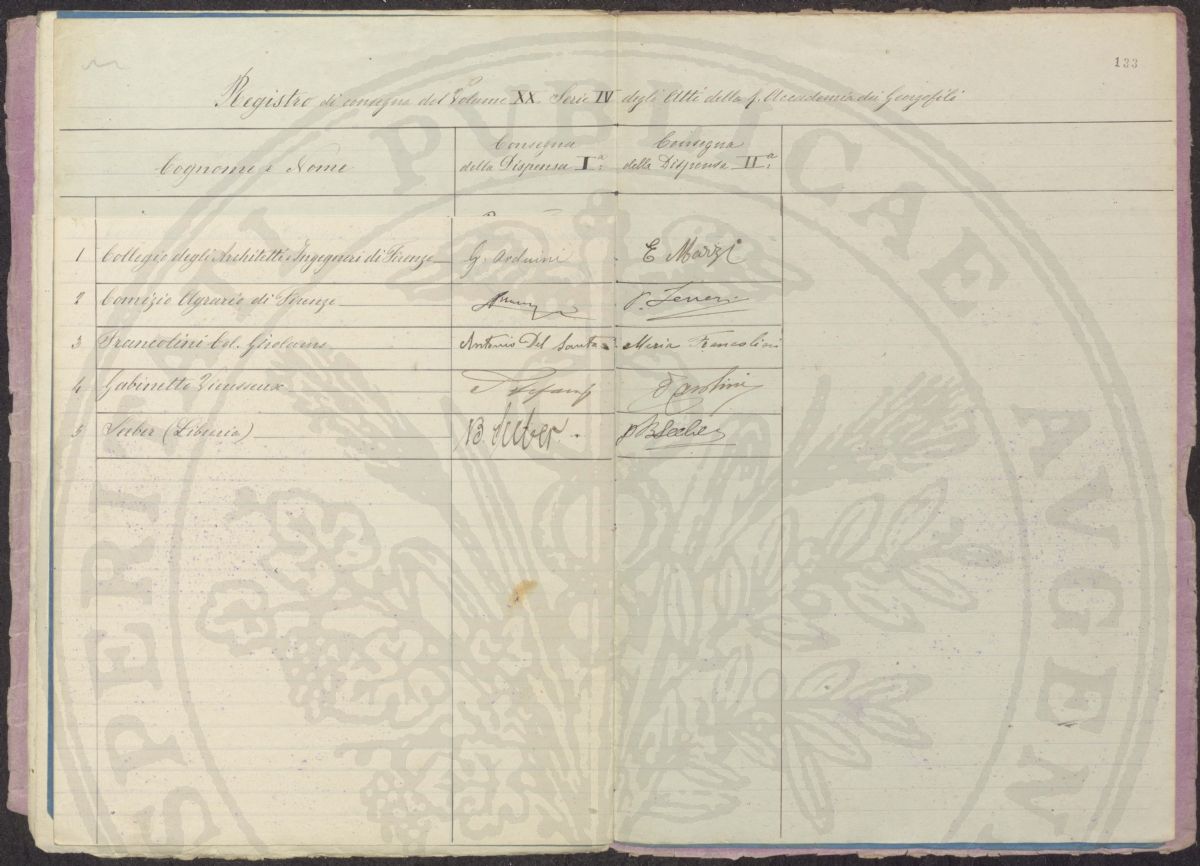 133
Registro di consegna del Volume XX Serie IV degli Atti della R. Accademia dei Georgofili
Cognome e Nome
Consegna
della Dispensa Iª
Consegna
della Dispensa IIª
1 Collegio degli Architetti e Ingegneri di Firenze G. Arduini E Marzi
2 Comizio Agrario di Firenze
3 Francolini Col. Girolamo Antonio Del Santo Maria Francolini
4 Gabinetto Vieusseux
5 Seeber (Libreria) B. Seeber P B Seeber
PROSPERITATI PVBLICAE AVGEN